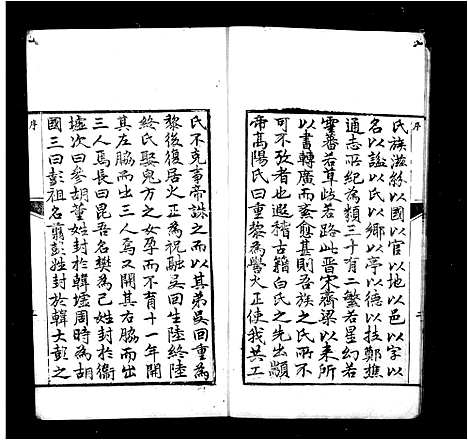 序
氏族滋緐以國以官以地以邑以字以
名以諡以氏以鄉以亭以德以技鄭樵
通志所紀為類三十有二繁若星幻若
靈蕃若草歧若路此晉宋齊梁以來所
以書轉廣而紊愈甚則吾族之氏所不
可不攷者也遐稽古籍白氏之先出顓
帝高陽氏曰重黎為嚳火正使我共工
序
氏不克事帝誅之而以其弟吳回重為
黎後復居火正為祝融吳回生陸終陸
終氏娶鬼方之女孕而不育十一年開
其左脇而出三人焉又開其右脇而出
三人焉長曰昆吾名樊為己姓封於衞
墟次曰參胡董姓封於韓墟周時為胡
國三曰彭祖名翦彭姓封於韓大彭之